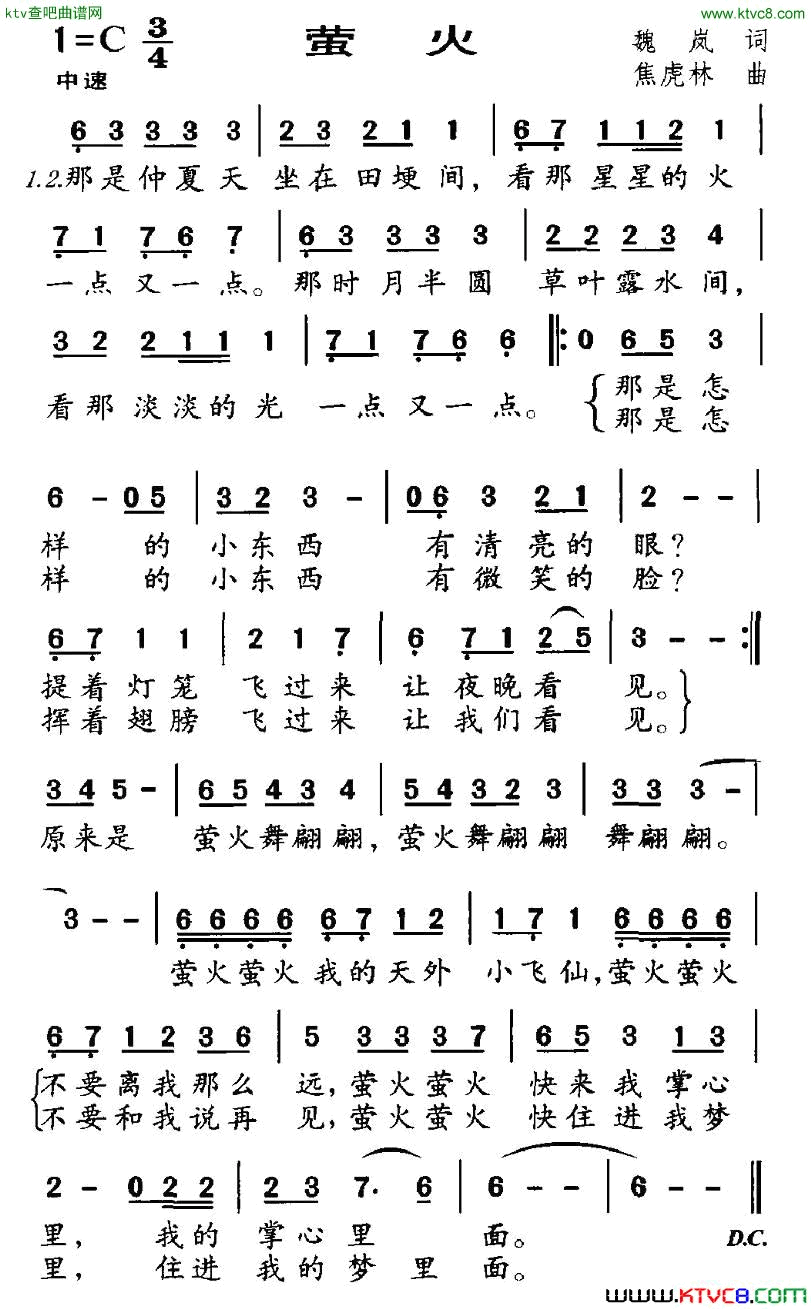 ktv查吧曲谱网
www.ktvc8.com
1=C 3/4
萤火
魏岚 词
中速
焦虎林 曲
6 3 3 3 3 | 2 3 2 1 1 | 6 7 1 1 2 1 |
1.2.那是仲夏天 坐在田埂间，看那星星的火
7 1 7 6 7 | 6 3 3 3 3 | 2 2 2 3 4 |
一点又一点。那时月半圆 草叶露水间，
3 2 2 1 1 1 | 7 1 7 6 6 ‖: 0 6 5 3 |
看那淡淡的光 一点又一点。 那是怎
那是怎
6 - 0 5 | 3 2 3 - | 0 6 3 2 1 | 2 - - |
样 的 小东西 有清亮的 眼？
样 的 小东西 有微笑的 脸？
6 7 1 1 | 2 1 7 | 6 7 1 2 5 | 3 - - :‖
提着灯笼 飞过来 让夜晚看 见。
挥着翅膀 飞过来 让我们看 见。
3 4 5 - | 6 5 4 3 4 | 5 4 3 2 3 | 3 3 3 - |
原来是 萤火舞翩翩，萤火舞翩翩 舞翩翩。
3 - - | 6 6 6 6 6 7 1 2 | 1 7 1 6 6 6 6 |
萤火萤火我的天外 小飞仙，萤火萤火
6 7 1 2 3 6 | 5 3 3 3 7 | 6 5 3 1 3 |
不要离我那么 远，萤火萤火 快来我掌心
不要和我说再 见，萤火萤火 快住进我梦
2 - 0 2 2 | 2 3 7· 6 | 6 - - | 6 - - ‖
里， 我的 掌心里 面。 D.C.
里， 住进 我的梦里 面。
www.KTVC8.COM